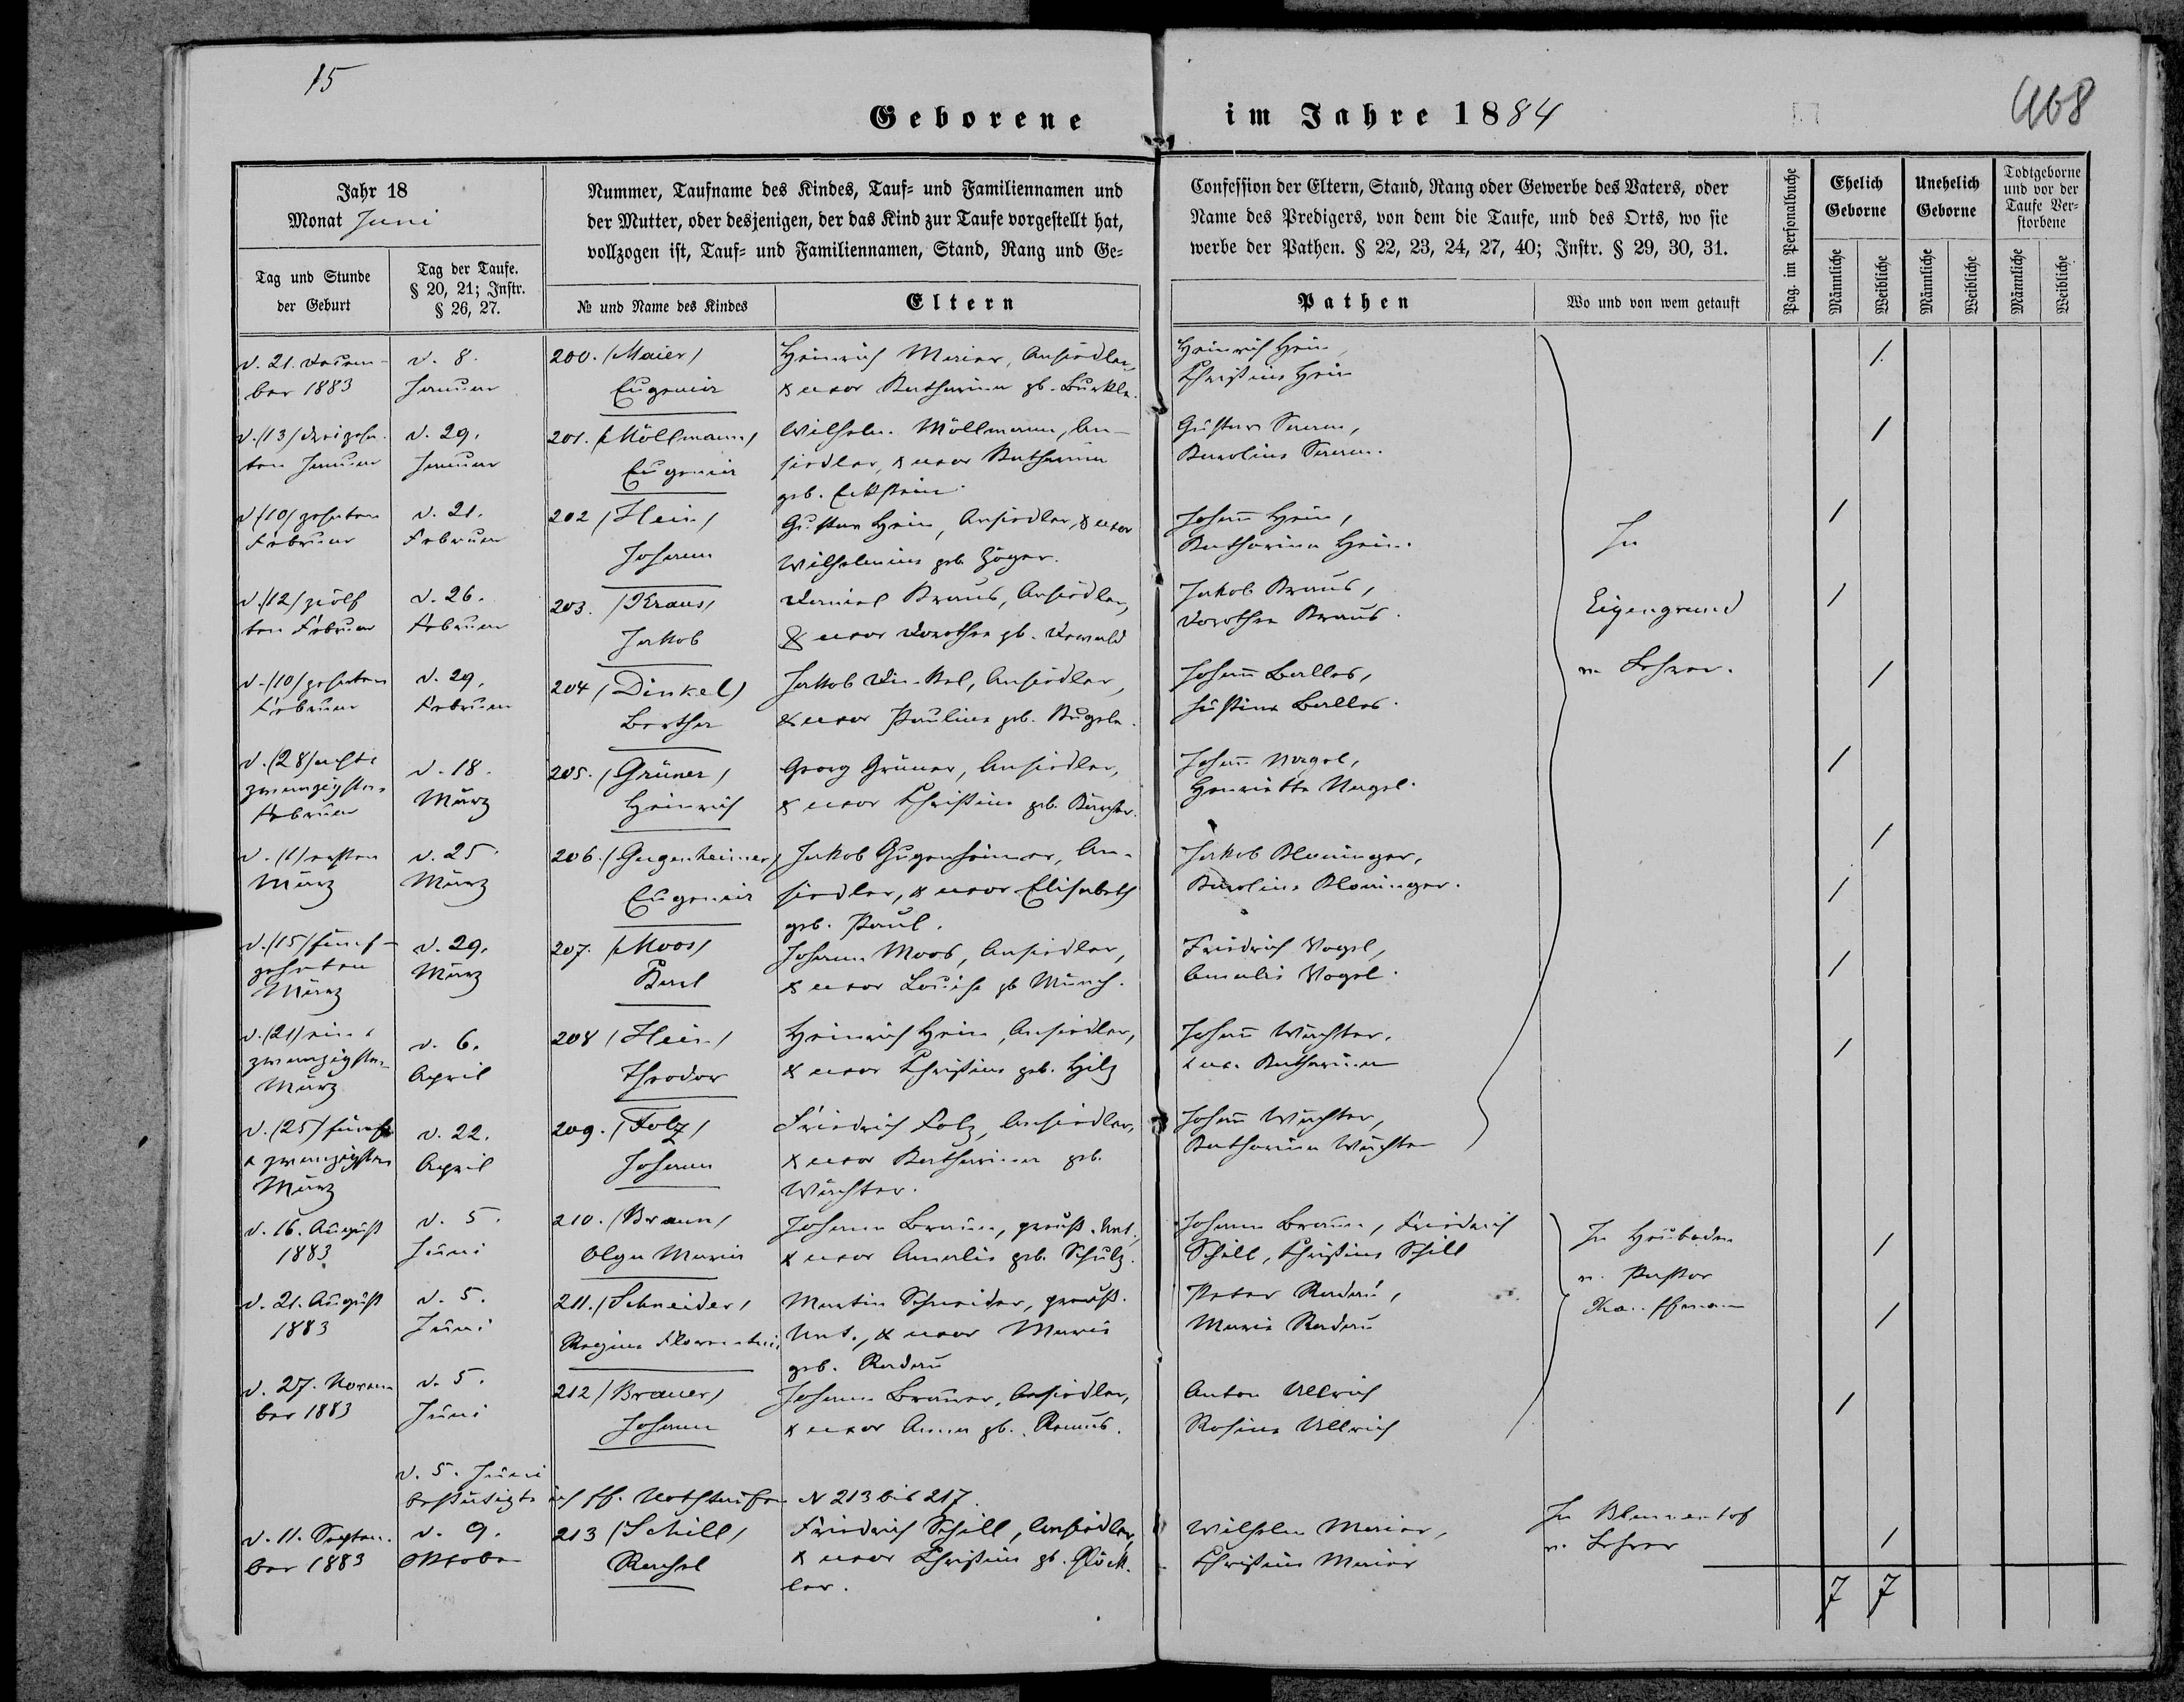 15
Geborene im Jahre 1884
468
Jahr 18
Monat Juni
Nummer, Taufname des Kindes, Tauf- und Familiennamen und
der Mutter, oder desjenigen, der das Kind zur Taufe vorgestellt hat,
vollzogen ist, Tauf- und Familiennamen, Stand, Rang und Ge-
Confession der Eltern, Stand, Rang oder Gewerbe des Vaters, oder
Name des Predigers, von dem die Taufe, und des Orts, wo sie
werbe der Pathen. § 22, 23, 24, 27, 40; Instr. § 29, 30, 31.
Pag. im Personalbuche
Ehelich Geborne
Unehelich Geborne
Todtgeborne und vor der Taufe Verstorbene
Tag und Stunde der Geburt
Tag der Taufe. § 20, 21; Instr. § 26, 27.
№ und Name des Kindes
Eltern
Pathen
Wo und von wem getauft
Männliche Weibliche Männliche Weibliche Männliche Weibliche
d. 21. Decem-
ber 1883
d. 8.
Januar
200. (Maier)
Eugenie
Heinrich Maier, Ansiedler,
& uxor Katharina gb. Bürkle.
Heinrich Hein,
Christine Hein
d. (13) dreizehn-
ten Januar
d. 29.
Januar
201. (Möllmann)
Eugenie
Wilhelm Möllmann, An-
siedler, & uxor Katharina
geb. Eckstein.
Gustav
Karoline
d. (10) zehnten
Februar
d. 21.
Februar
202 (Hein)
Johann
Gustav Hein, Ansiedler, & uxor
Wilhelmine geb.
Johann Hein,
Katharina Hein.
In
d. (12) zwölf
ten Februar
d. 26.
Februar
203. (Kraus)
Jakob
Daniel Kraus, Ansiedler,
& uxor Dorothea gb.
Jakob Kraus,
Dorothea Kraus.
Eigengrund
d. (10) zehnten
Februar
d. 29.
Februar
204 (Dinkel)
Bertha
Jakob Dinkel, Ansiedler,
& uxor Pauline geb. Kugele.
Johann Balles,
Justine Balles.
v. Lehrer.
d. (28) acht &
zwanzigsten
Februar
d. 18.
März
205. (Grüner)
Heinrich
Georg Grüner, Ansiedler,
& uxor Christine geb. Kärcher.
Johann Nagel,
Henriette Nagel.
d. (1) ersten
März
d. 25.
März
206. (Gugenheimer)
Eugenie
Jakob Gugenheimer, An-
siedler, & uxor Elisabeth
geb. Paul.
Jakob Kloninger,
Karoline Kloninger.
d. (15) fünf-
zehnten
März
d. 29.
März
207. (Moos)
Karl
Johann Moos, Ansiedler,
& uxor Louise gb Münch.
Friedrich Vogel,
Amalie Vogel.
d. (21) ein &
zwanzigsten
März
d. 6.
April
208 (Hein)
Theodor
Heinrich Hein, Ansiedler,
& uxor Christine geb. Hilz
Johann Wächter,
Katharina
d. (25) fünf
& zwanzigsten
März
d. 22.
April
209. (Folz)
Johann
Friedrich Folz, Ansiedler,
& uxor Katharina geb.
Wächter.
Johann Wächter,
Katharina Wächter
d. 16. August
1883
d. 5.
Juni
210. (Braun)
Olga Maria
Johann Braun, preuß. Unt.,
& uxor Amalie geb. Schulz.
Johann Braun, Friedrich
Schill, Christine Schill
In Heuboden
v. Pastor
d. 21. August
1883
d. 5.
Juni
211. (Schneider)
Regine Florentine
Martin Schneider, preuß.
Unt., & uxor Maria
geb. Radau
Peter Radau,
Maria Radau
d. 27. Novem-
ber 1883
d. 5.
Juni
212 (Brauer)
Johann
Johann Brauer, Ansiedler,
& uxor Anna gb. Remus.
Anton Ullrich
Rosine Ullrich
d. 5. Juni
bestätigte ich ff. Nothtaufen N 213 bis 217.
d. 11. Septem-
ber 1883
d. 9.
Oktober
213 (Schill)
Rachel
Friedrich Schill, Ansiedler,
& uxor Christine gb. Glöck-
ler.
Wilhelm Maier,
Christine Maier
In Blumenhof
v. Lehrer
7 7